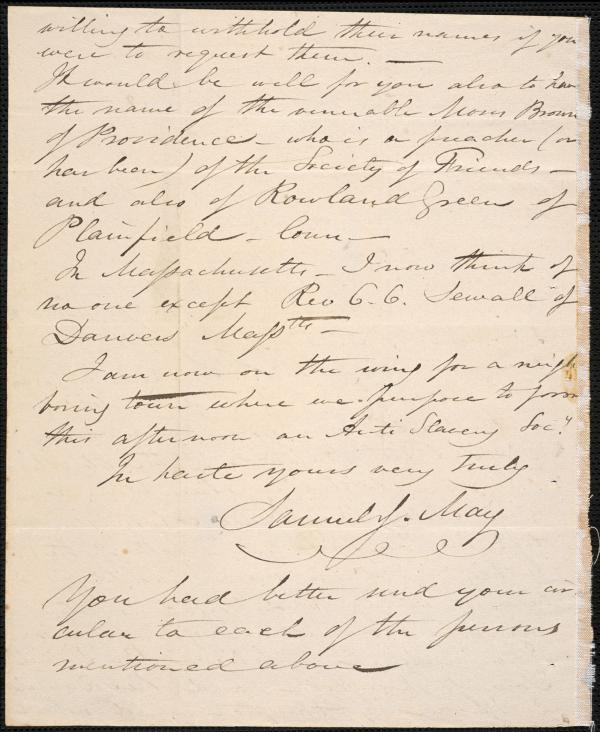 willing to withhold their names if you
were to request them. —
It would be well for you also to have
the name of the venerable Moses Brown
of Providence – who is a preacher (or
has been) of the Society of Friends –
and also of Rowland Green of
Plainfield – Conn –
In Massachusetts – I now think of
no one except Rev C. C. Sewall of
Danvers Masstts –
I am now on the wing for a neigh
boring town where we purpose to form
this afternoon an Anti Slavery Socy.
In haste yours very truly
Samuel J. May
You had better send your cir
cular to each of the persons
mentioned above